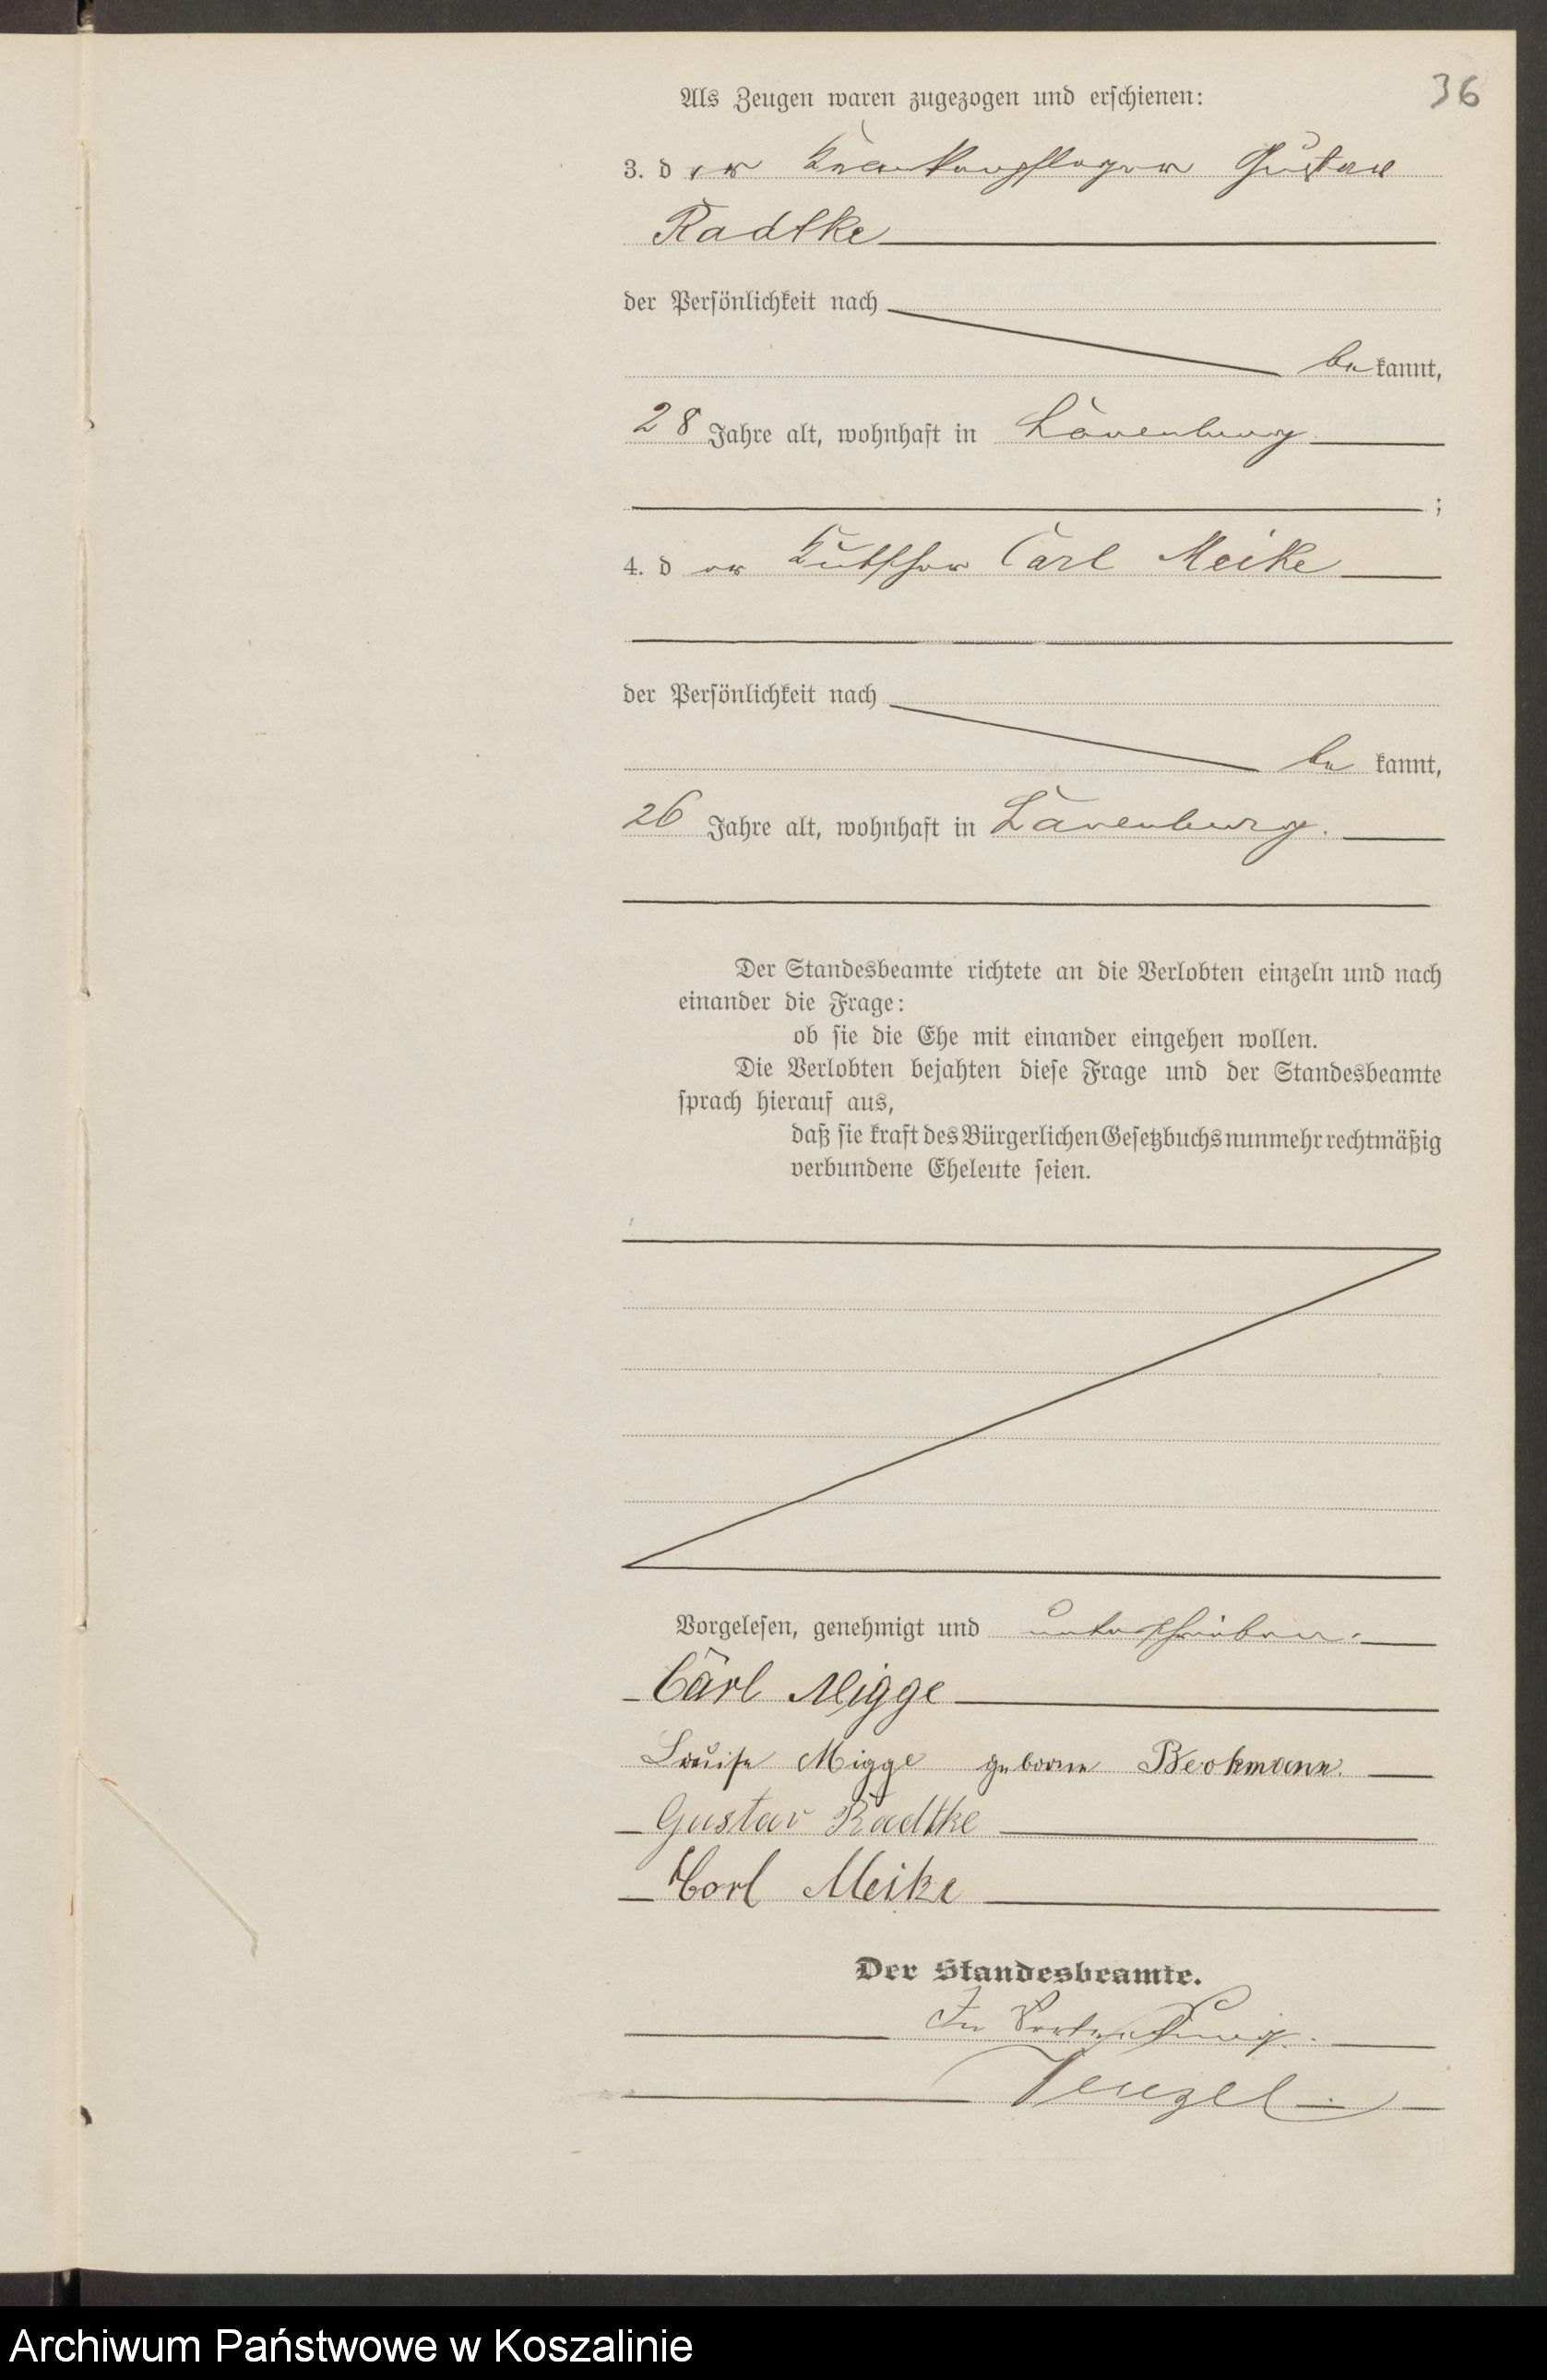 36
Als Zeugen waren zugezogen und erschienen:
3. der Krankenpfleger Gustav
Radtke
der Persönlichkeit nach
bekannt,
28 Jahre alt, wohnhaft in Lauenburg
;
4. der Kutscher Carl Meike
der Persönlichkeit nach
be kannt,
26 Jahre alt, wohnhaft in Lauenburg.
Der Standesbeamte richtete an die Verlobten einzeln und nach
einander die Frage:
ob sie die Ehe mit einander eingehen wollen.
Die Verlobten bejahten diese Frage und der Standesbeamte
sprach hierauf aus,
daß sie kraft des Bürgerlichen Gesetzbuchs nunmehr rechtmäßig
verbundene Eheleute seien.
Vorgelesen, genehmigt und unterschrieben.
Carl Migge
Louise Migge geborene Beckmann.
Gustav Radtke
Carl Meike
Der Standesbeamte.
In Vertretung.
Tenzel
Archiwum Państwowe w Koszalinie